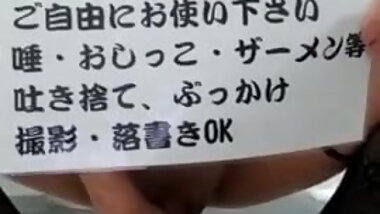 ご自由にお使い下さい
唾・おしっこ・ザーメン等
吐き捨て、ぶっかけ
撮影・落書きOK